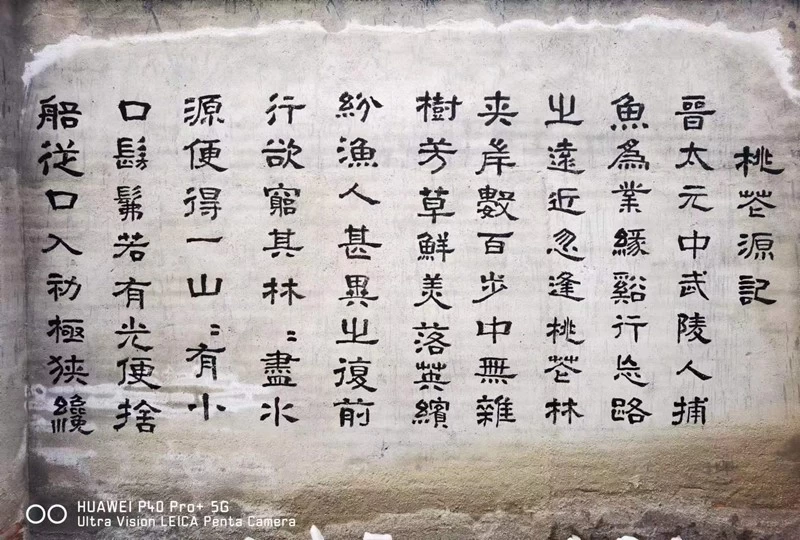 桃花源記
晉太元中武陵人捕
魚爲業緣谿行忘路
之遠近忽逢桃花林
夾岸數百步中無雜
樹芳草鮮美落英繽
紛漁人甚異之復前
行欲窮其林〻盡水
源便得一山〻有小
口髣髴若有光便捨
船從口入初極狹纔
HUAWEI P40 Pro+ 5G
Ultra Vision LEICA Penta Camera